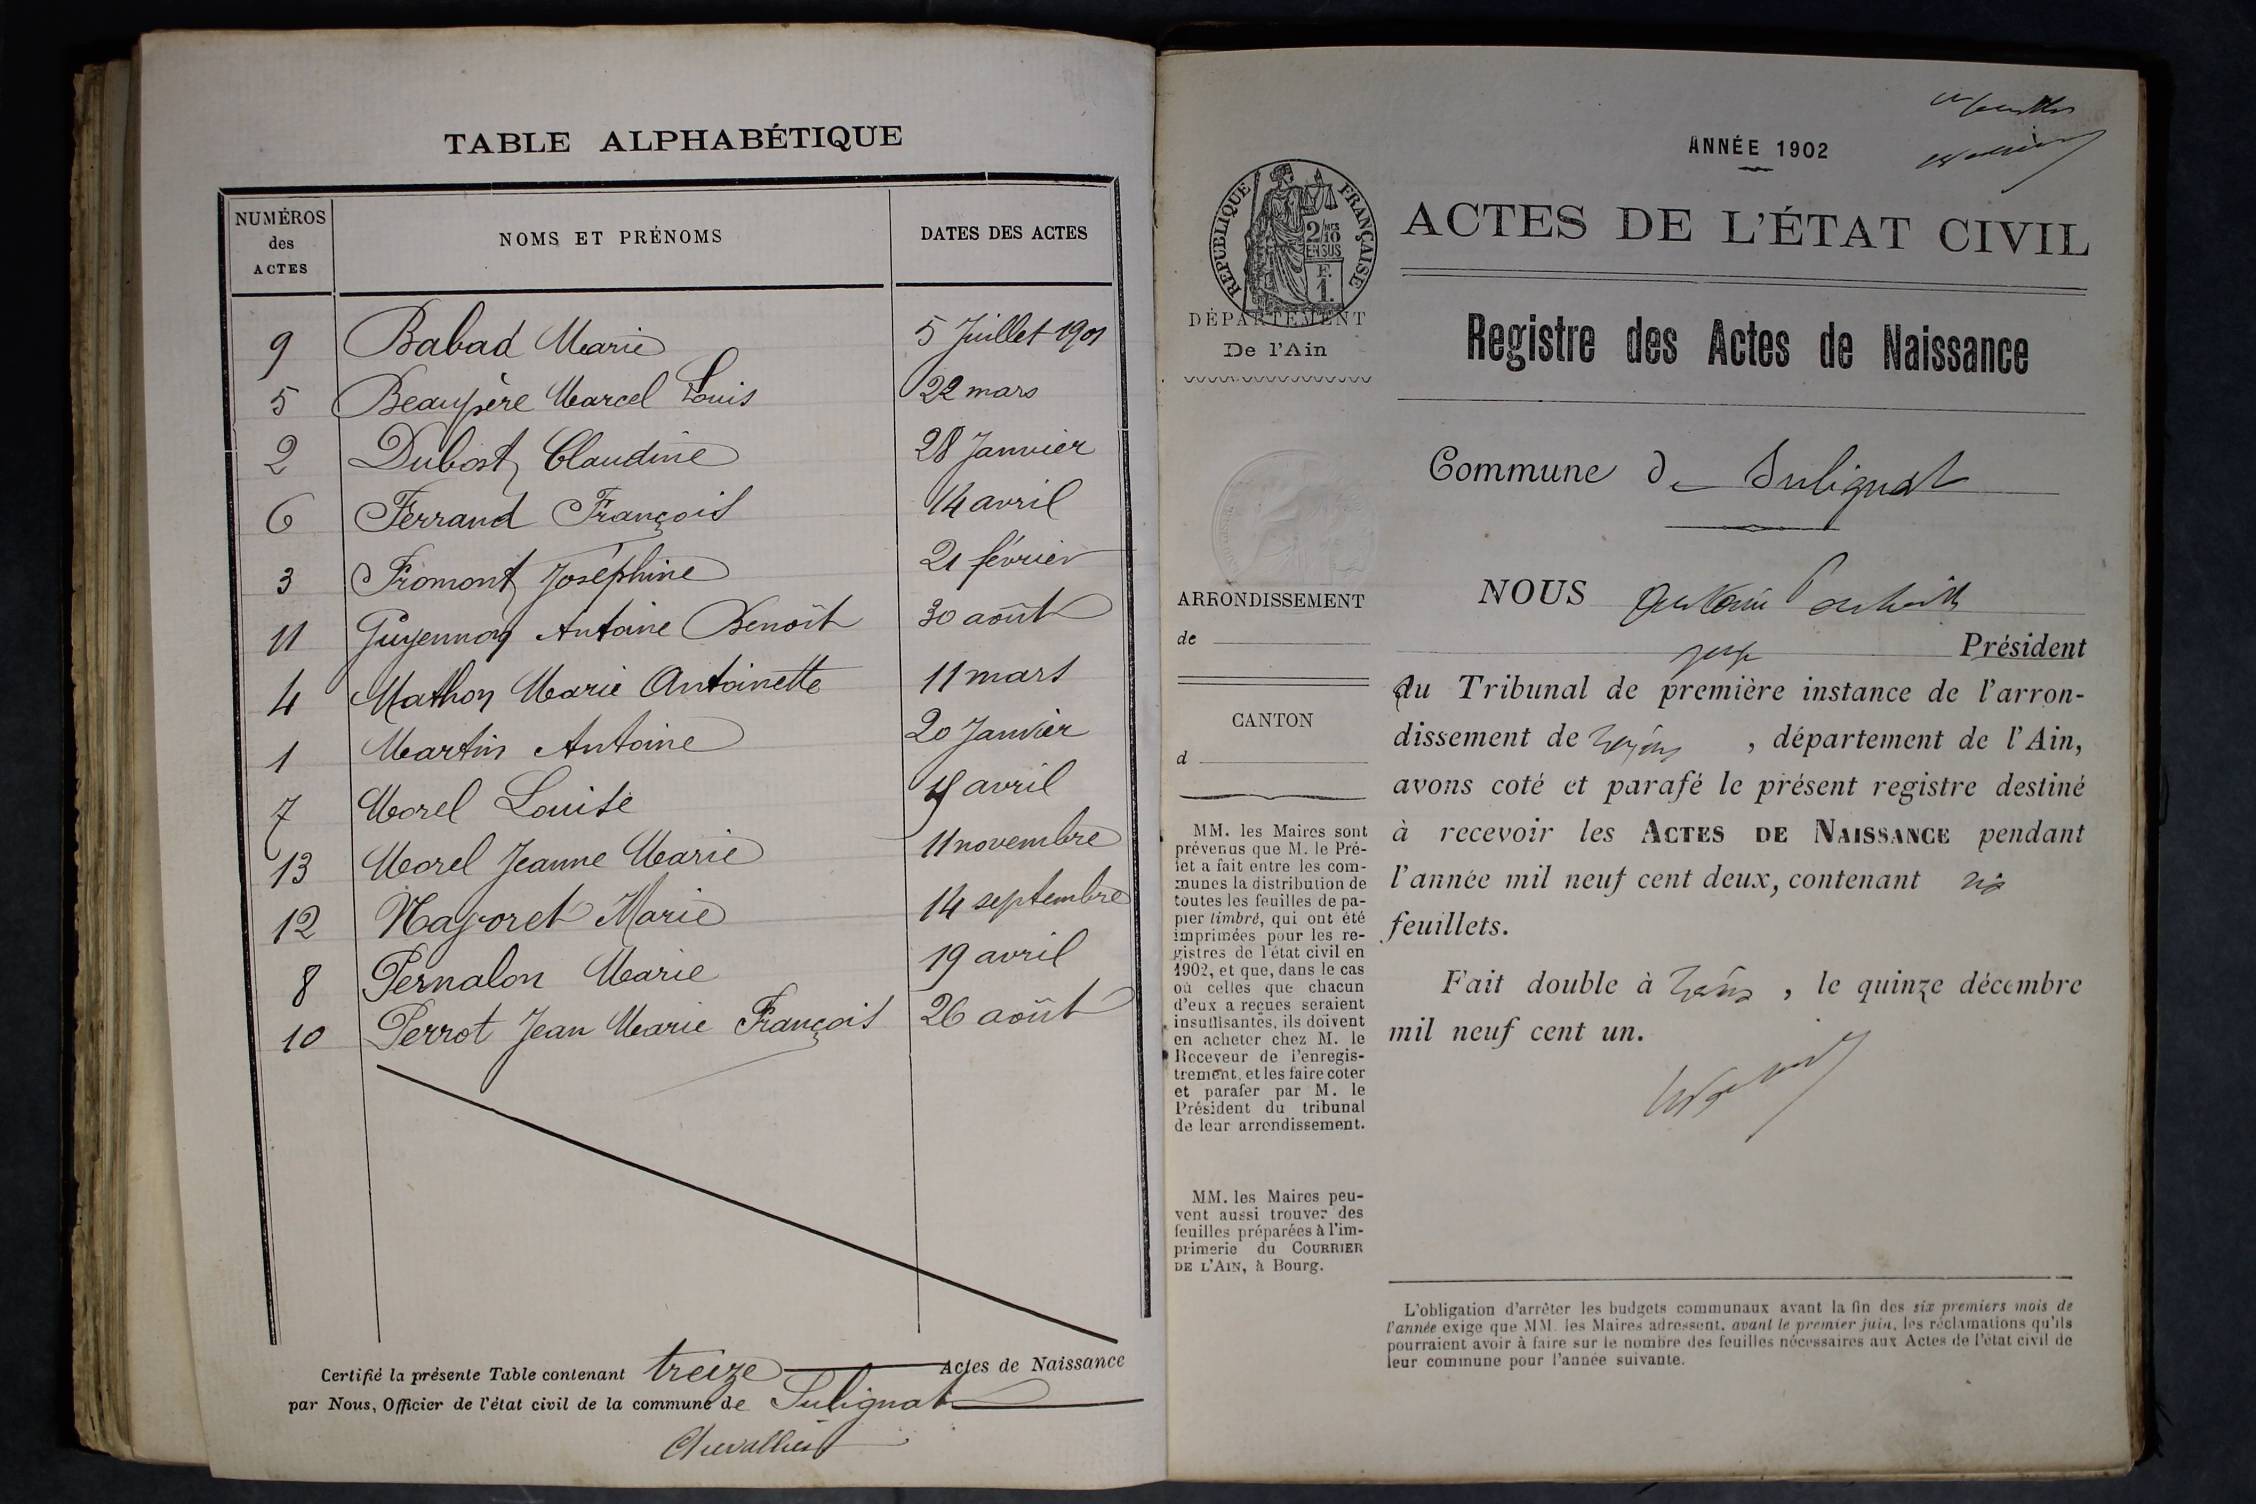 TABLE ALPHABÉTIQUE
NUMÉROS des ACTES NOMS ET PRÉNOMS DATES DES ACTES
9 Babad Marie 5 Juillet 1901
5 Beaupère Marcel Louis 22 mars
2 Dubost Claudine 28 Janvier
6 Ferrand François 14 avril
3 Fromont Joséphine 21 février
11 Guyennon Antoine Benoît 30 août
4 Mathon Marie Antoinette 11 mars
1 Martin Antoine 20 Janvier
7 Morel Louise avril
13 Morel Jeanne Marie 11 novembre
12 Nayoret Marie 14 septembre
8 Pernalon Marie 19 avril
10 Perrot Jean Marie François 26 août
Certifié la présente Table contenant treize Actes de Naissance
par Nous, Officier de l'état civil de la commune de Sulignat
Chevallier
ANNÉE 1902
RÉPUBLIQUE FRANÇAISE
2/10 EN SUS
F.
1.
ACTES DE L'ÉTAT CIVIL
DÉPARTEMENT
De l'Ain
Registre des Actes de Naissance
Commune de Sulignat
ARRONDISSEMENT
de
CANTON
d
MM. les Maires sont
prévenus que M. le Pré-
fet a fait entre les com-
munes la distribution de
toutes les feuilles de pa-
pier timbré, qui ont été
imprimées pour les re-
gistres de l'état civil en
1902, et que, dans le cas
où celles que chacun
d'eux a reçues seraient
insuffisantes, ils doivent
en acheter chez M. le
Receveur de l'enregis-
trement, et les faire coter
et parafer par M. le
Président du tribunal
de leur arrondissement.
MM. les Maires peu-
vent aussi trouver des
feuilles préparées à l'im-
primerie du COURRIER
DE L'AIN, à Bourg.
NOUS Antoine
juge Président
du Tribunal de première instance de l'arron-
dissement de , département de l'Ain,
avons coté et parafé le présent registre destiné
à recevoir les ACTES DE NAISSANCE pendant
l'année mil neuf cent deux, contenant
feuillets.
Fait double à , le quinze décembre
mil neuf cent un.
L'obligation d'arrêter les budgets communaux avant la fin des six premiers mois de
l'année exige que MM. les Maires adressent, avant le premier juin, les réclamations qu'ils
pourraient avoir à faire sur le nombre des feuilles nécessaires aux Actes de l'état civil de
leur commune pour l'année suivante.